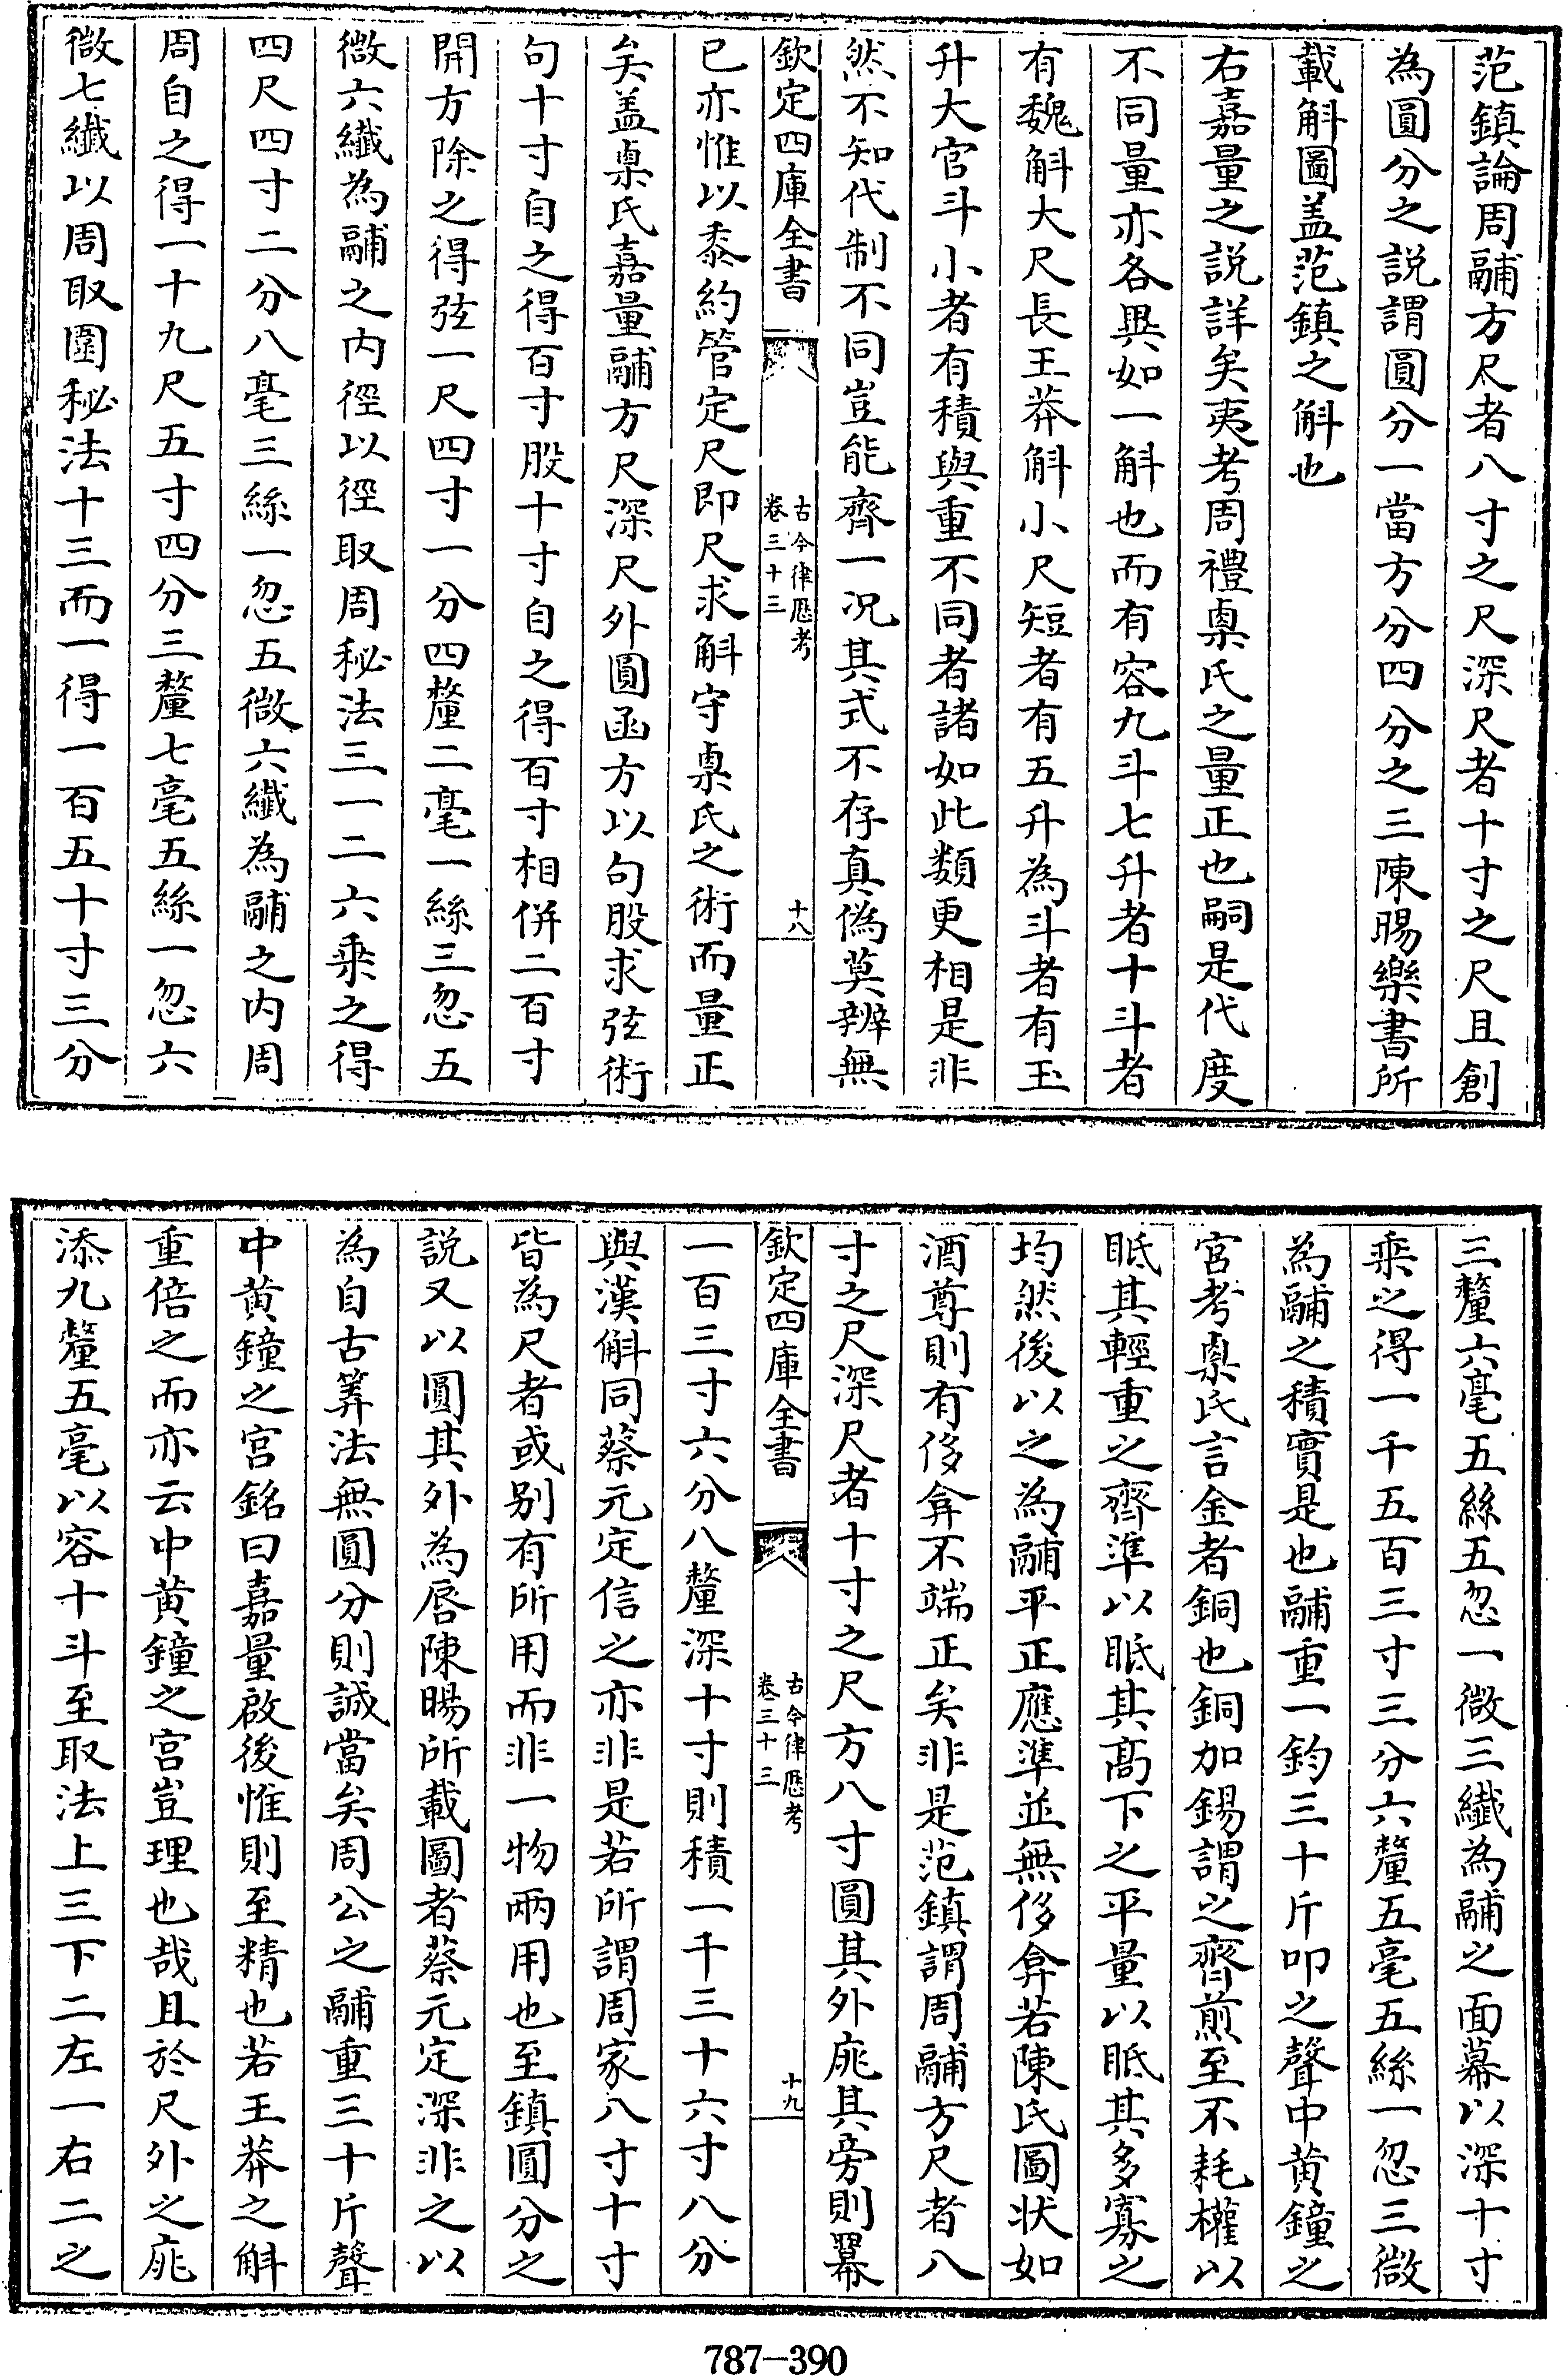 范鎮論周鬴方尺者八寸之尺深尺者十寸之尺且創
為圓分之説謂圓分一當方分四分之三陳暘樂書所
載斛圖盖范鎮之斛也
右嘉量之説詳矣夷考周禮㮚氏之量正也嗣是代度
不同量亦各異如一斛也而有容九斗七升者十斗者
有魏斛大尺長王莽斛小尺短者有五升為斗者有玉
升大官斗小者有積與重不同者諸如此類更相是非
然不知代制不同豈能齊一况其式不存真偽莫辨無
欽定四庫全書
古今律厯考
卷三十三
十八
已亦惟以黍約管定尺即尺求斛守㮚氏之術而量正
矣盖㮚氏嘉量鬴方尺深尺外圓函方以句股求弦術
句十寸自之得百寸股十寸自之得百寸相併二百寸
開方除之得弦一尺四寸一分四釐二毫一絲三忽五
微六纖為鬴之内徑以徑取周秘法三一二六乗之得
四尺四寸二分八毫三絲一忽五微六纖為鬴之内周
周自之得一十九尺五寸四分三釐七毫五絲一忽六
微七纖以周取圓秘法十三而一得一百五十寸三分
三釐六毫五絲五忽一微三纖為鬴之面幕以深十寸
乗之得一千五百三寸三分六釐五毫五絲一忽三微
為鬴之積實是也鬴重一鈞三十斤叩之聲中黄鐘之
宮考㮚氏言金者銅也銅加錫謂之齊煎至不耗權以
眡其輕重之齊準以眡其髙下之平量以眡其多寡之
均然後以之為鬴平正應準並無侈弇若陳氏圖状如
酒尊則有侈弇不端正矣非是范鎮謂周鬴方尺者八
寸之尺深尺者十寸之尺方八寸圓其外庣其旁則冪
欽定四庫全書
古今律厯考
卷三十三
十九
一百三寸六分八釐深十寸則積一千三十六寸八分
與漢斛同蔡元定信之亦非是若所謂周家八寸十寸
皆為尺者或别有所用而非一物兩用也至鎮圓分之
説又以圓其外為唇陳暘所載圖者蔡元定深非之以
為自古筭法無圓分則誠當矣周公之鬴重三十斤聲
中黄鐘之宮銘曰嘉量啟後惟則至精也若王莽之斛
重倍之而亦云中黄鐘之宮豈理也哉且於尺外之庣
添九釐五毫以容十斗至取法上三下二左一右二之
787-390